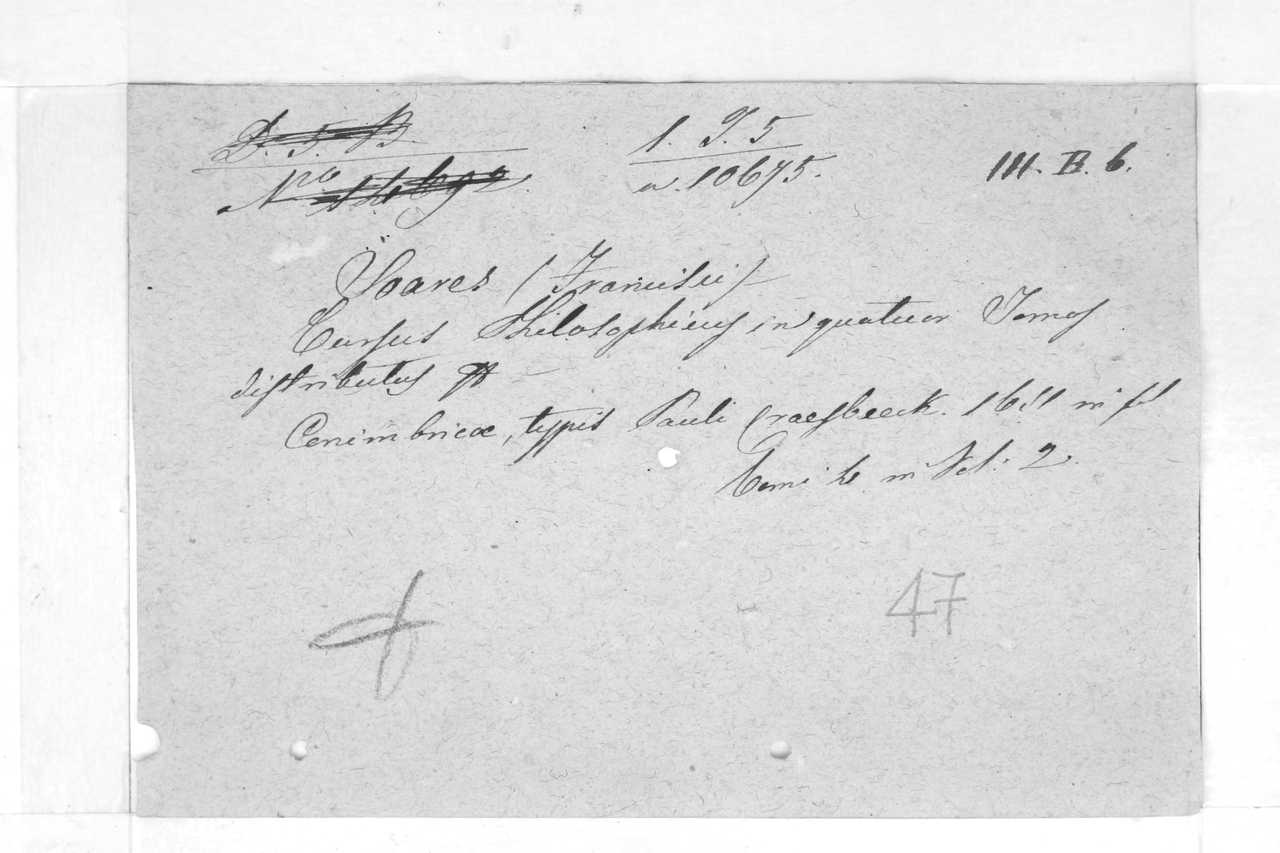 D. 5. B. 1. J. 5 III. B. 6.
No 14692. a. 10675.
Soares (Francisci)
Cursus Philosophicus in quatuor Tomos
distributus
Conimbricæ, typis Pauli Craesbeeck. 1651 in fol
Tomi 4 in Vol: 2.
47